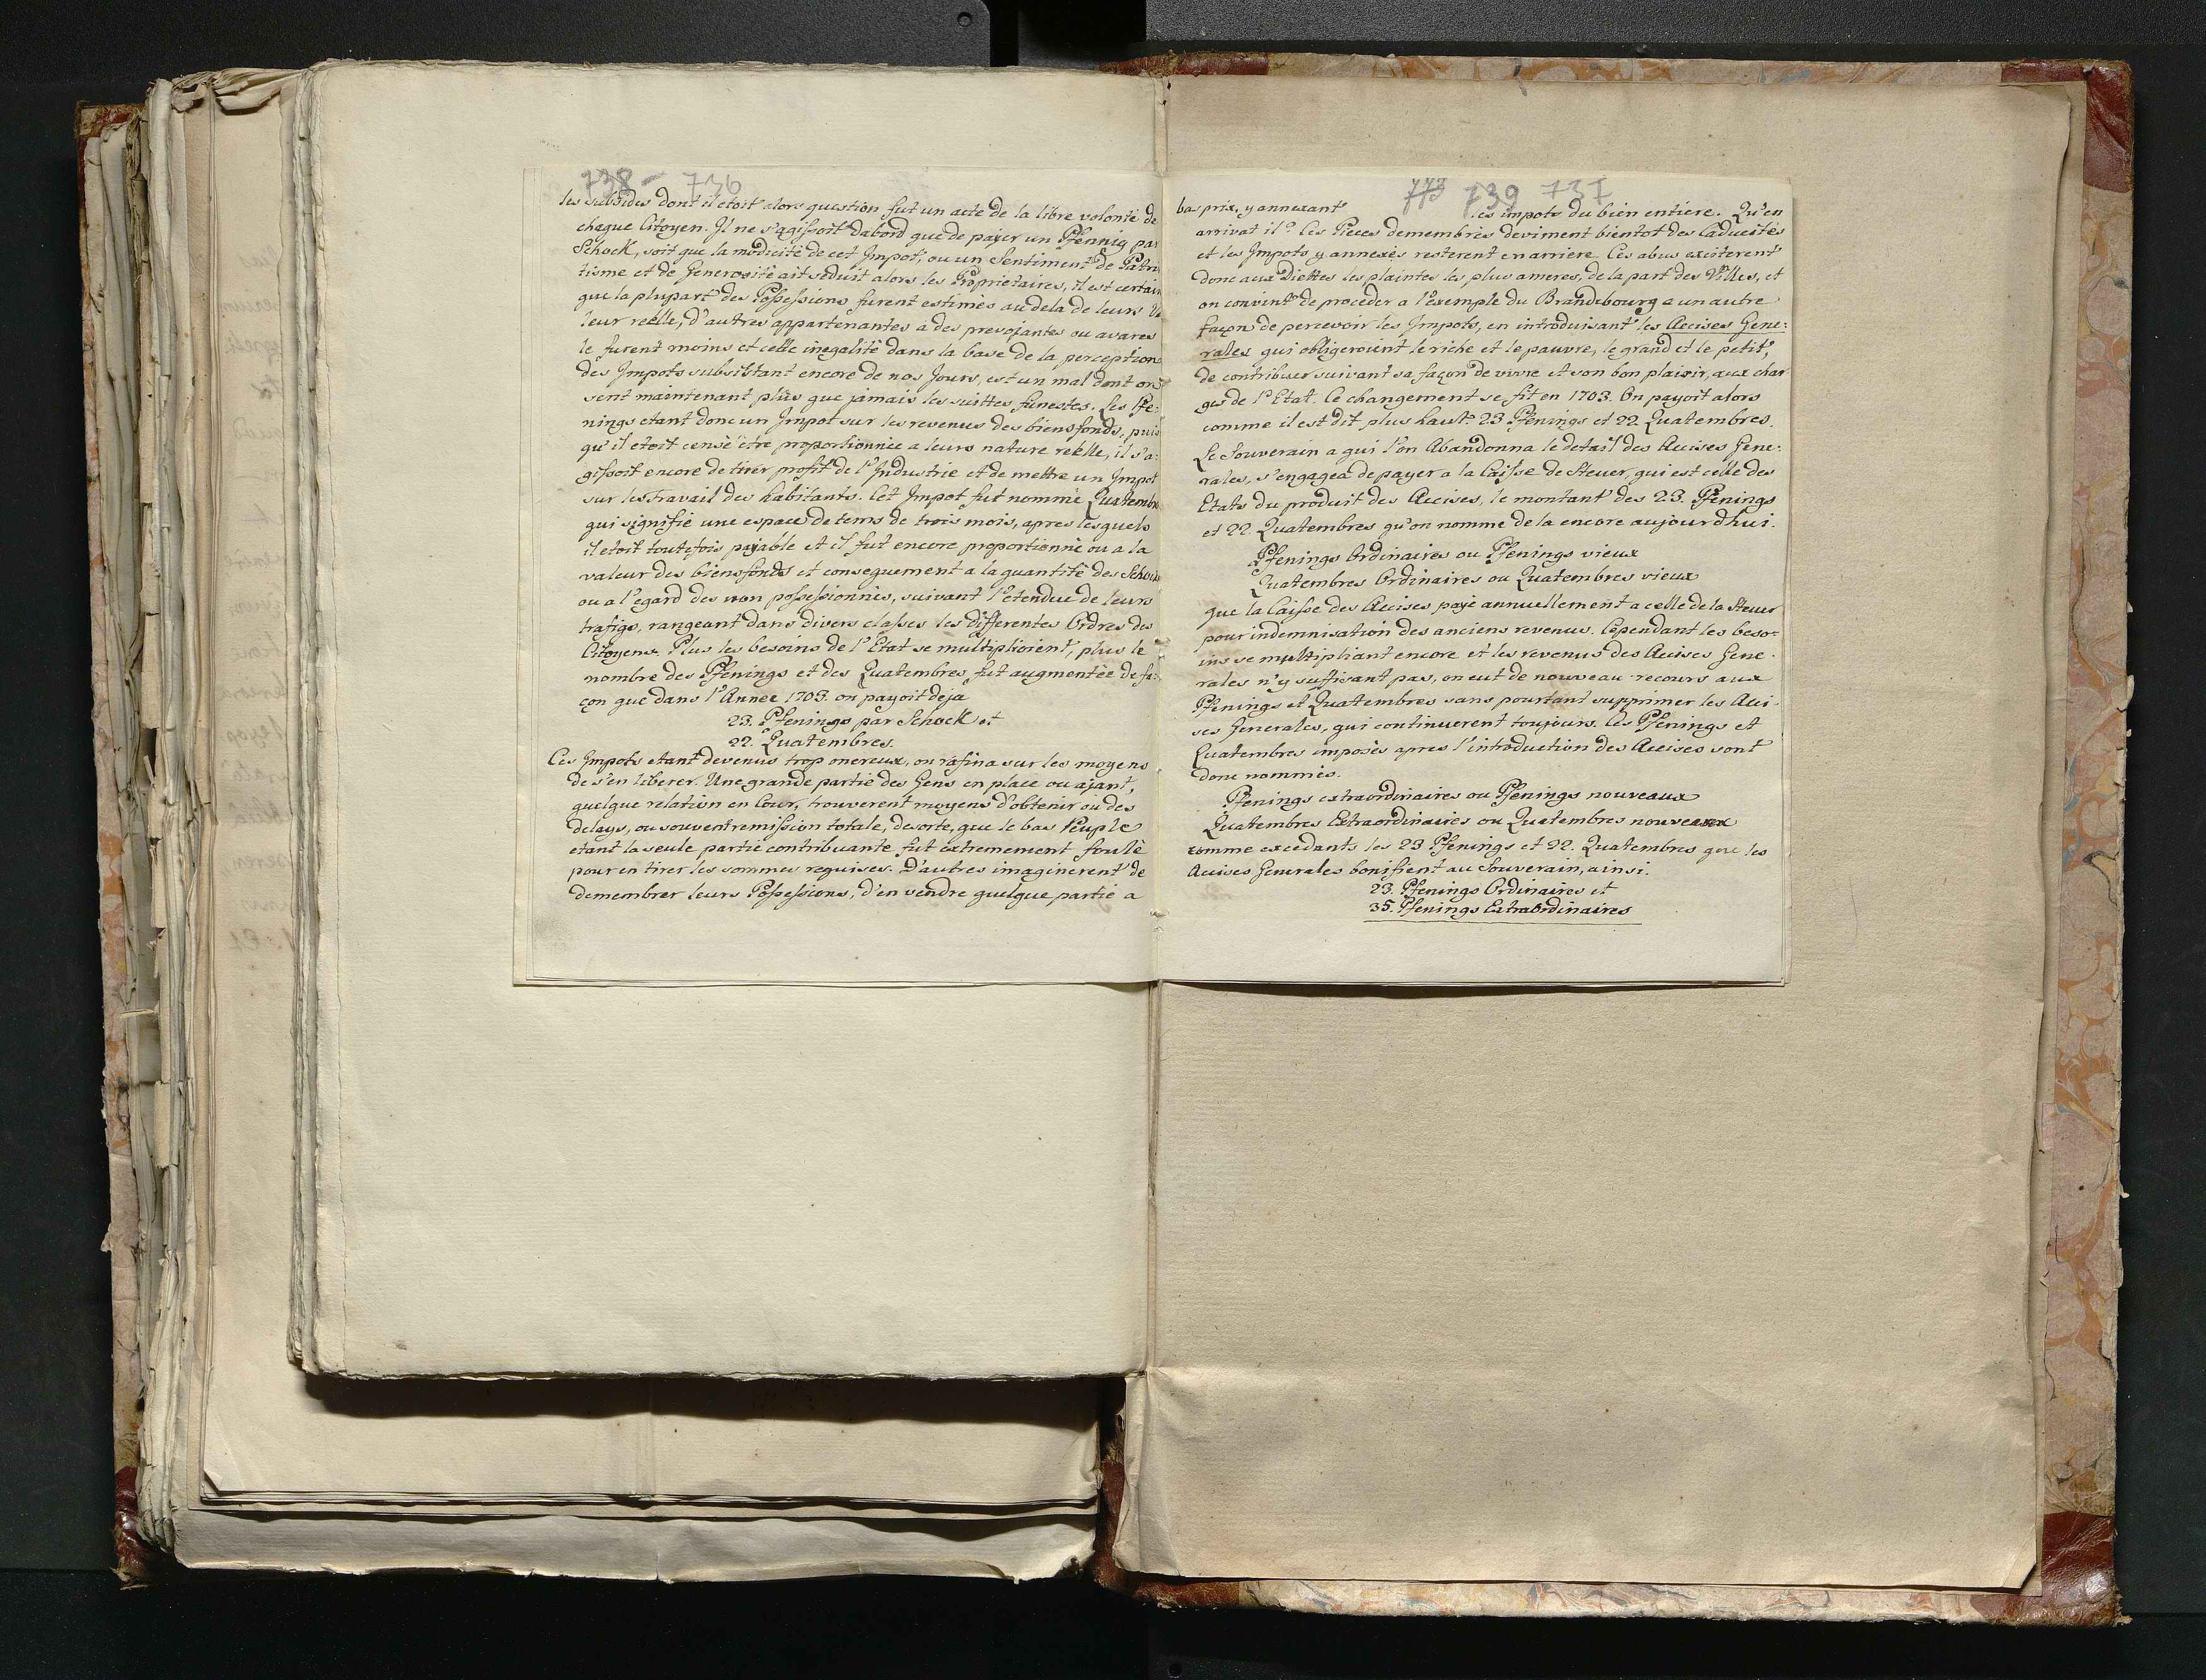 738 - 736
les subsides dont il etoit alors question fut un acte de la libre volonté de
chaque Citoyen. Il ne s'agissoit dabord que de paÿer un Pfennig par
Schock, soit que la modicité de cet Impot, ou un Sentiment de Patrio
tisme et de Generosité ait seduit alors les Proprietaires, il est certain
que la plupart des Possessions furent estimès au dela de leurs Va
leur reelle, d'autres appartenantes a des prevojantes ou avares
le furent moins et celle inegalité dans la base de la perception
des Impots subsistant encore de nos Jours, est un mal dont on
sent maintenant plus que jamais les suittes funestes. Les Pfe:
nings etant donc un Impot sur les revenus des biensfonds, puis
qu'il etoit censé être proportionnée a leurs nature reelle, il s'a:
gissoit encore de tirer profit de l'Industrie et de mettre un Impot
sur les travail des habitants. Cet Impot fut nommè Quatembre
qui signifie une espace de tems de trois mois, apres lesquels
il etoit toutefois pajable et il fut encore proportionnè ou a la
valeur des biensfonds et consequement a la quantité des Schock
ou a l'egard des non possessionnés, suivant l'etendue de leurs
trafiqs, rangeant dans divers classes les differentes Ordres des
Citoyens. Plus les besoins de l'Etat se multiplioient, plus le
nombre des Pfenings et des Quatembres, fut augmentèe de fa:
çon que dans l'Annee 1703. on payoit deja
23. Pfenings par Schock et
22. Quatembres.
Ces Impots etant devenus trop onereux, on rafina sur les moyens
de s'en liberer. Une grande partie des Gens en place ou ajant,
quelque relation en Cour, trouverent moyens d'obtenir ou des
delays, ou souvent remission totale, desorte, que le bas Peuple
etant la seule partie contribuante fut extremement foulè
pour en tirer les sommes requises. D'autres imaginerent de
demembrer leurs Possessions, d'en vendre quelque partie a
773 739 737
bas prix, y annexant les impots du bien entiere. Qu'en
arrivat il? Ces Pieces demembrès deviment bientot des Caducitès
et les Impots y annexès resterent en arriere. Ces abus exciterent
donc aux Diettes les plaintes les plus ameres, de la part des Villes, et
on convint de proceder a l'exemple du Brandebourg a un autre
façon de percevoir les Impots, en introduisant les Accises Gene:
rales qui obligeroient le riche et le pauvre, le grand et le petit,
de contribuer suivant sa façon de vivre et son bon plaisir, aux char
ges de l'Etat. Ce changement se fit en 1703. On payoit alors
comme il est dit plus haut. 23 Pfenings et 22 Quatembres.
Le Souverain a qui l'on Abandonna le detail des Accises Gene:
rales, s'engagea de payer a la Caisse de Steuer, qui est celle des
Etats du produit des Accises, le montant des 23. Pfenings
et 22. Quatembres qu'on nomme de la encore aujourdhui.
Pfenings Ordinaires ou Pfenings vieux
Quatembres Ordinaires ou Quatembres vieux
que la Caisse des Accises paÿe annuellement a celle de la Steuer
pour indemnisation des anciens revenus. Cependant les beso:
ins se multipliant encore et les revenus des Accises Gene:
rales n'y suffisant pas, on eut de nouveau recours aux
Pfenings et Quatembres sans pourtant supprimer les Acci:
ses Generales, qui continuerent toujours. Ces Pfenings et
Quatembres imposès apres l'introduction des Accises sont
donc nommès.
Pfenings extraordinaires ou Pfenings nouveaux
Quatembres Extraordinaires ou Quatembres nouveaux
comme excedants les 23 Pfenings et 22. Quatembres que les
Accises Generales bonifient au Souverain, ainsi.
23. Pfenings Ordinaires et
35. Pfenings Extraordinaires